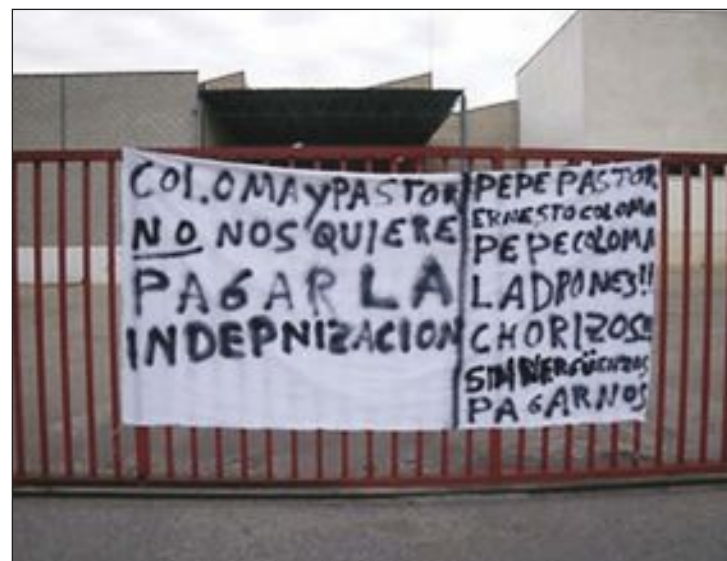 COLOMA Y PASTOR
NO NOS QUIERE
PAGAR LA
INDEPNIZACION
PEPE PASTOR
ERNESTO COLOMA
PEPE COLOMA
LADRONES!!
CHORIZOS!!
SINVERGÜENZAS
PAGARNOS